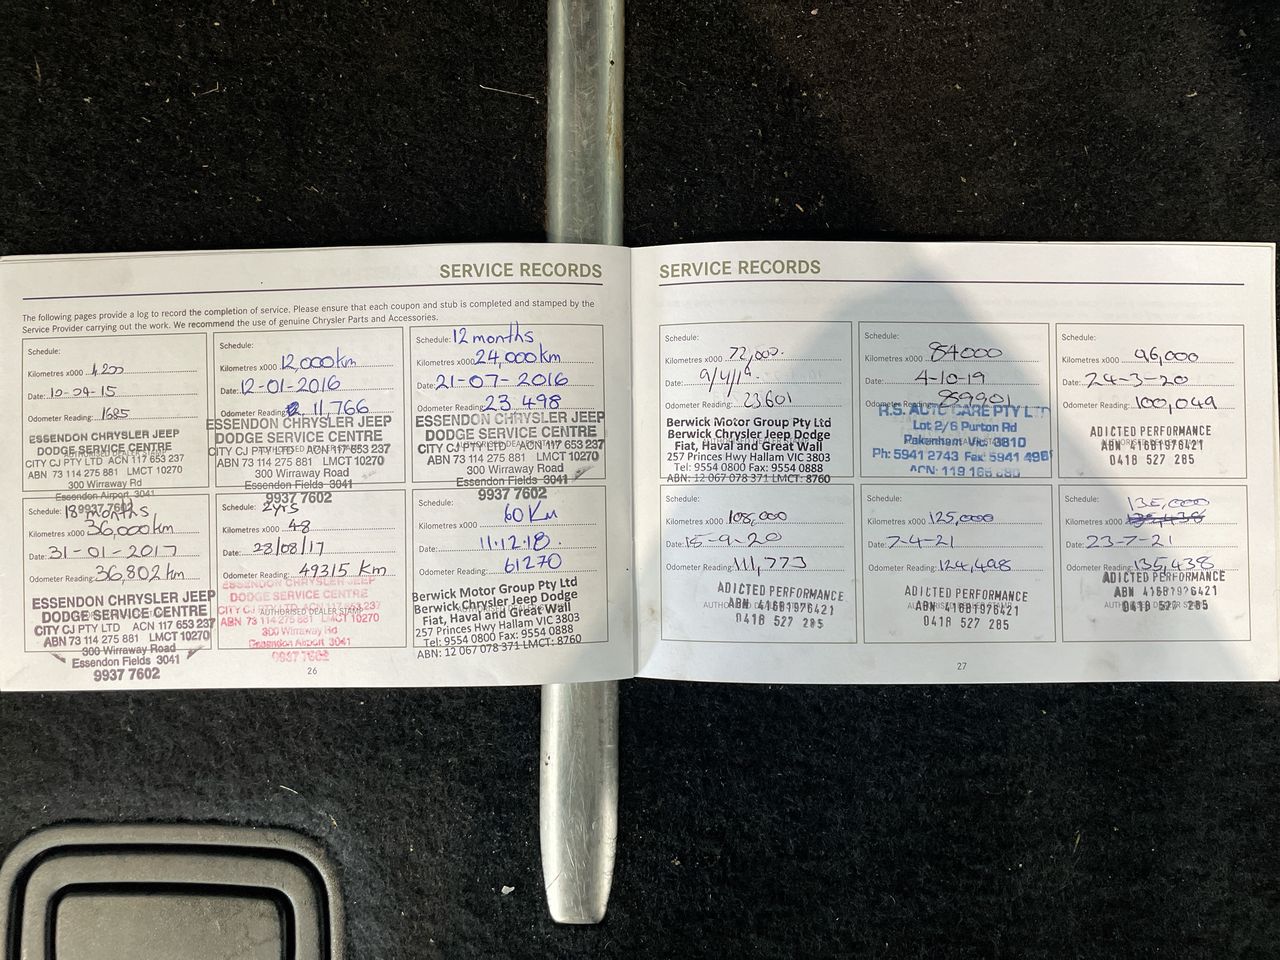 SERVICE RECORDS
The following pages provide a log to record the completion of service. Please ensure that each coupon and stub is completed and stamped by the
Service Provider carrying out the work. We recommend the use of genuine Chrysler Parts and Accessories.
Schedule:
Kilometres x000 1,200
Date: 10-04-15
Odometer Reading: 1685
ESSENDON CHRYSLER JEEP
DODGE SERVICE CENTRE
CITY CJ PTY LTD ACN 117 653 237
ABN 73 114 275 881 LMCT 10270
300 Wirraway Rd
Essendon Airport 3041
9937 7602
Schedule:
Kilometres x000 12,000km
Date: 12-01-2016
Odometer Reading: 11,766
ESSENDON CHRYSLER JEEP
DODGE SERVICE CENTRE
CITY CJ PTY LTD ACN 117 653 237
ABN 73 114 275 881 LMCT 10270
300 Wirraway Road
Essendon Fields 3041
9937 7602
Schedule: 12 months
Kilometres x000 24,000km
Date: 21-07-2016
Odometer Reading: 23 498
ESSENDON CHRYSLER JEEP
DODGE SERVICE CENTRE
CITY CJ PTY LTD ACN 117 653 237
ABN 73 114 275 881 LMCT 10270
300 Wirraway Road
Essendon Fields 3041
9937 7602
Schedule: 18 months
Kilometres x000 36,000km
Date: 31-01-2017
Odometer Reading: 36,802 km
ESSENDON CHRYSLER JEEP
DODGE SERVICE CENTRE
CITY CJ PTY LTD ACN 117 653 237
ABN 73 114 275 881 LMCT 10270
300 Wirraway Road
Essendon Fields 3041
9937 7602
Schedule: 2yrs
Kilometres x000 48
Date: 28/08/17
Odometer Reading: 49315 Km
ESSENDON CHRYSLER JEEP
DODGE SERVICE CENTRE
CITY CJ PTY LTD ACN 117 653 237
AUTHORISED DEALER STAMP
ABN 73 114 275 881 LMCT 10270
300 Wirraway Rd
Essendon Airport 3041
9937 7602
Schedule:
Kilometres x000 60 Km
Date: 11.12.18.
Odometer Reading: 61270
Berwick Motor Group Pty Ltd
Berwick Chrysler Jeep Dodge
Fiat, Haval and Great Wall
257 Princes Hwy Hallam VIC 3803
Tel: 9554 0800 Fax: 9554 0888
ABN: 12 067 078 371 LMCT: 8760
26
SERVICE RECORDS
Schedule:
Kilometres x000 72,000.
Date: 9/4/19.
Odometer Reading: 23601
Berwick Motor Group Pty Ltd
Berwick Chrysler Jeep Dodge
Fiat, Haval and Great Wall
257 Princes Hwy Hallam VIC 3803
Tel: 9554 0800 Fax: 9554 0888
ABN: 12 067 078 371 LMCT: 8760
Schedule:
Kilometres x000 84000
Date: 4-10-19
Odometer Reading:
R.S. AUTO CARE PTY LTD
Lot 2/6 Purton Rd
Pakenham Vic 3810
Ph: 5941 2743 Fax 5941 4981
Schedule:
Kilometres x000 96,000
Date: 24-3-20
Odometer Reading: 100,049
ADICTED PERFORMANCE
ABN 41681976421
0418 527 285
Schedule:
Kilometres x000 108,000
Date: 15-9-20
Odometer Reading: 111,773
ADICTED PERFORMANCE
ABN 41681976421
0418 527 285
Schedule:
Kilometres x000 125,000
Date: 7-4-21
Odometer Reading: 124,498
ADICTED PERFORMANCE
ABN 41681976421
0418 527 285
Schedule: 135,000
Kilometres x000 135,438
Date: 23-7-21
Odometer Reading: 135,438
ADICTED PERFORMANCE
ABN 41681976421
0418 527 285
27